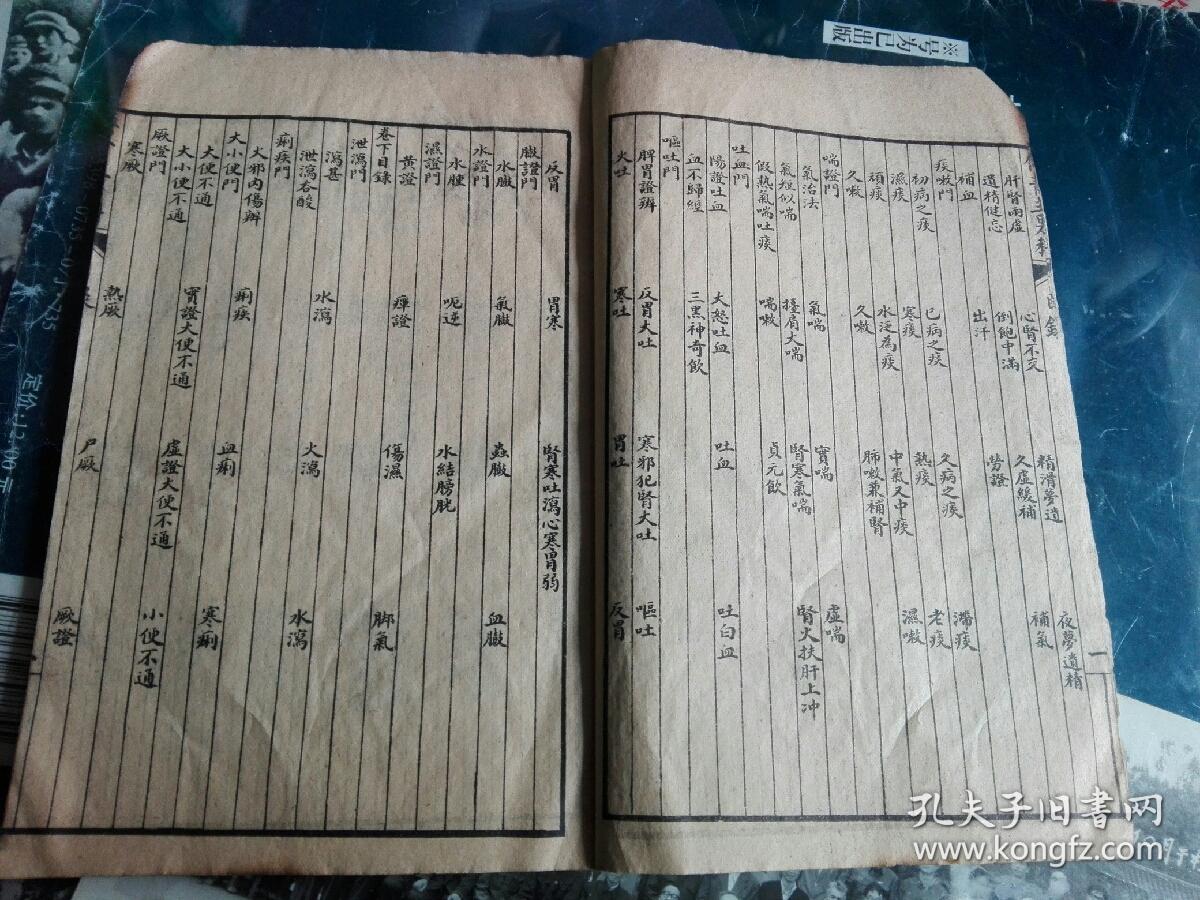 肝腎兩虛 心腎不交 精滑夢遺 夜夢遺精
遺精健忘 倒飽中滿 久虛緩補 補氣
補血 出汗 勞證
痰嗽門
初病之痰 已病之痰 久病之痰 滯痰
濕痰 寒痰 熱痰 老痰
頑痰 水泛為痰 中氣又中痰 濕嗽
久嗽 久嗽 肺嗽兼補腎
喘證門
氣治法 氣喘 實喘 虛喘
氣短似喘 擡肩大喘 腎寒氣喘 腎火扶肝上冲
假熱氣喘吐痰 喘嗽 貞元飲
吐血門
陽證吐血 大怒吐血 吐血 吐白血
血不歸經 三黑神奇飲
嘔吐門
脾胃證辨 反胃大吐 寒邪犯腎大吐 嘔吐
火吐 寒吐 胃吐 反胃
反胃 胃寒 腎寒吐瀉心寒胃弱
臌證門
水臌 氣臌 蟲臌 血臌
水證門
水腫 呃逆 水結膀胱
濕證門
黃證 癉證 傷濕 脚氣
卷下目錄
泄瀉門
瀉甚 水瀉 火瀉 水瀉
泄瀉吞酸
痢疾門
火邪內傷辨 痢疾 血痢 寒痢
大小便門
大便不通 實證大便不通 虛證大便不通 小便不通
大小便不通
厥證門
寒厥 熱厥 尸厥 厥證
※号为已出版
定价:12.00元
孔夫子旧书网
www.kongfz.com